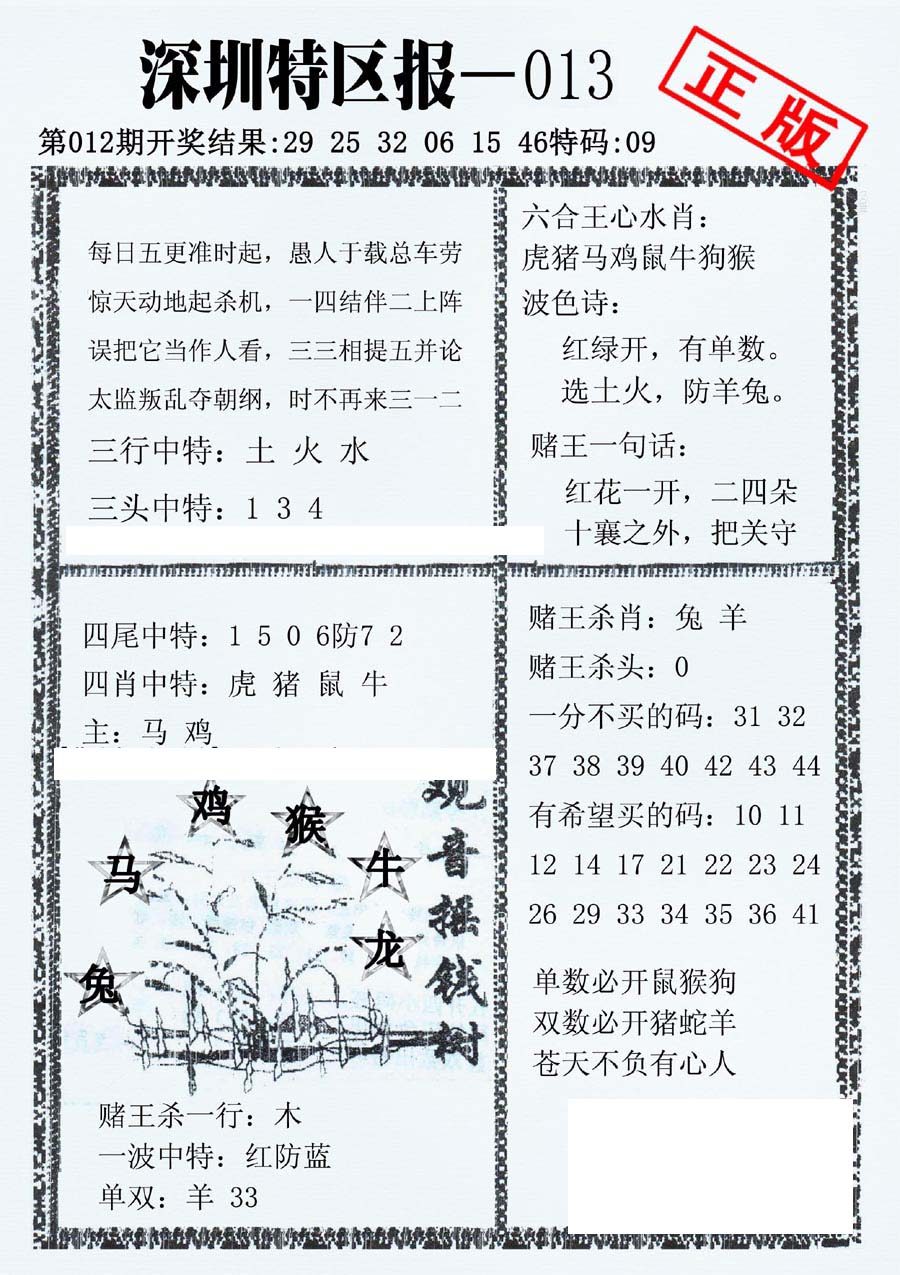 深圳特区报—013
正版
第012期开奖结果:29 25 32 06 15 46特码:09
每日五更准时起，愚人于载总车劳
惊天动地起杀机，一四结伴二上阵
误把它当作人看，三三相提五并论
太监叛乱夺朝纲，时不再来三一二
三行中特：土 火 水
三头中特：1 3 4
六合王心水肖：
虎猪马鸡鼠牛狗猴
波色诗：
红绿开，有单数。
选土火，防羊兔。
赌王一句话：
红花一开，二四朵
十襄之外，把关守
四尾中特：1 5 0 6防7 2
四肖中特：虎 猪 鼠 牛
主：马 鸡
鸡
猴
马
牛
龙
兔
观音摇钱树
赌王杀一行：木
一波中特：红防蓝
单双：羊 33
赌王杀肖：兔 羊
赌王杀头：0
一分不买的码：31 32
37 38 39 40 42 43 44
有希望买的码：10 11
12 14 17 21 22 23 24
26 29 33 34 35 36 41
单数必开鼠猴狗
双数必开猪蛇羊
苍天不负有心人